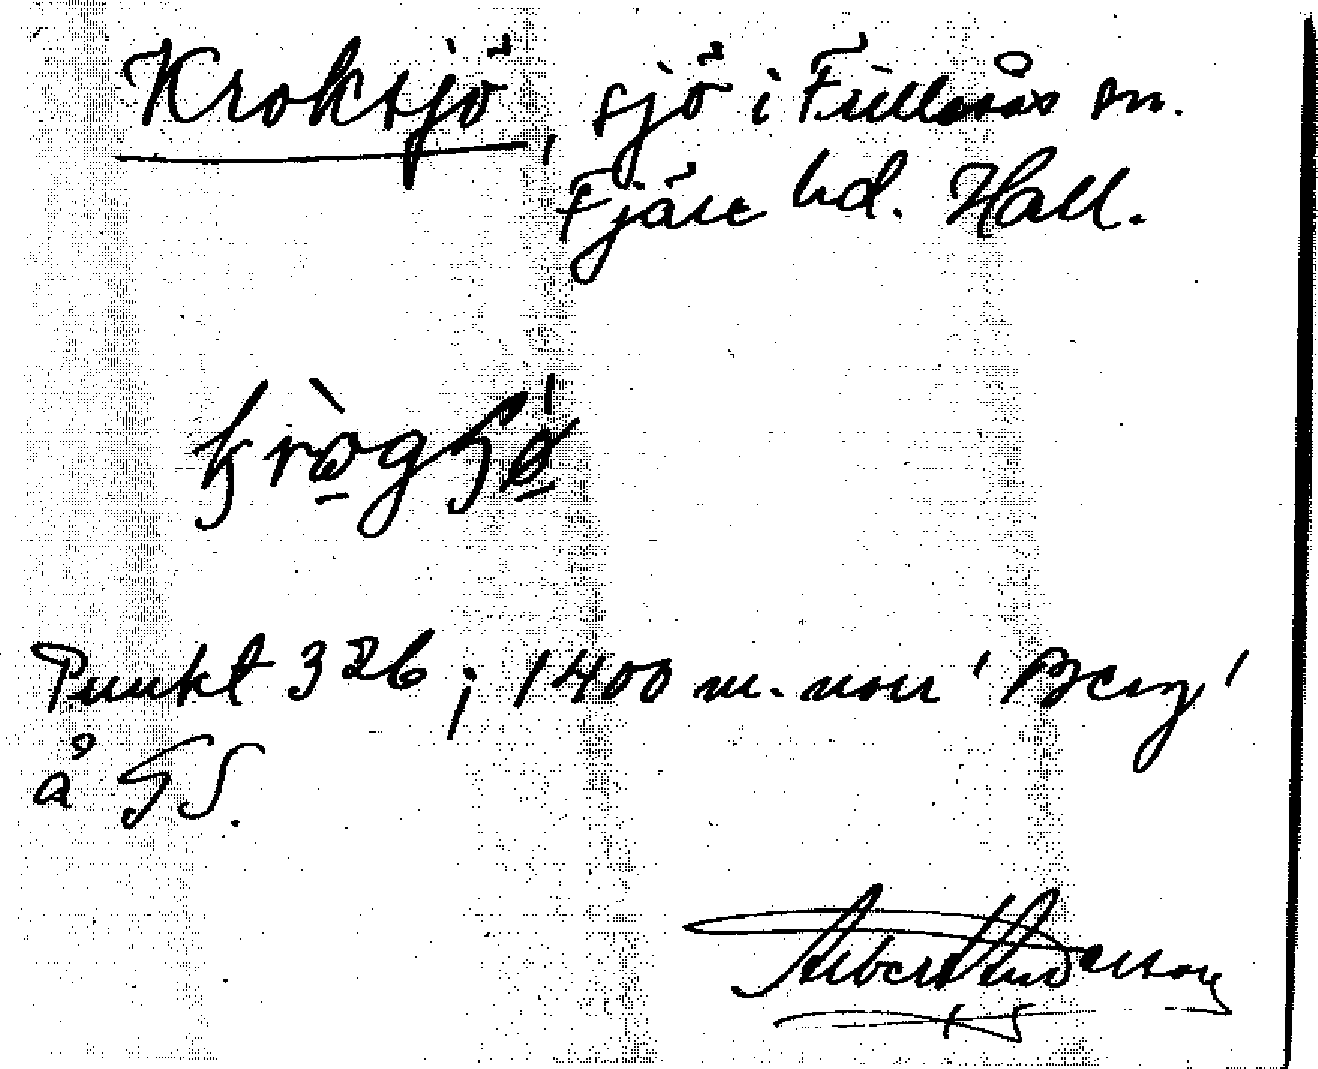 Kroksjö, sjö i Fjällerås sn.
Fjäre hd. Hall.
Punkt 326; 1400 m. norr 'Berg'
å GS.
Albert Andersson